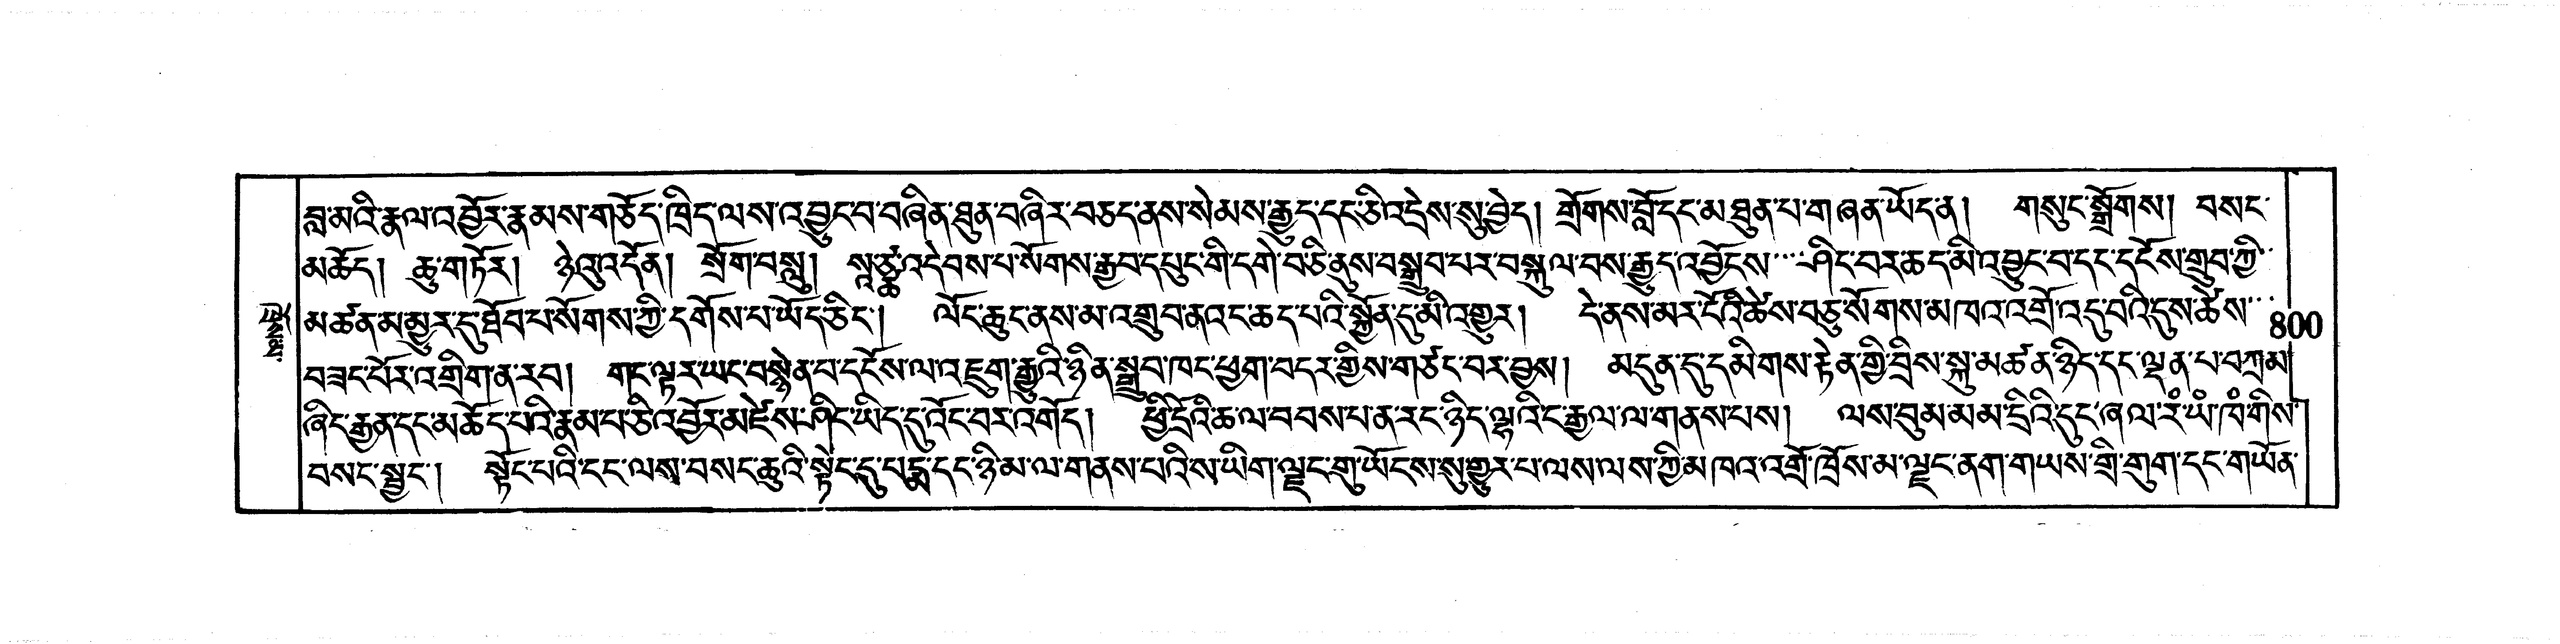 བླ་མའི་རྣལ་འབྱོར་རྣམས་གཅོད་ཁྲིད་ལས་འབྱུང་བ་བཞིན་ཐུན་བཞིར་བཅད་ནས་སེམས་རྒྱུད་དང་ཅི་འདྲེས་སུ་བྱེད། གྲོགས་བློ་དང་མཐུན་པ་གཞན་ཡོད་ན། གསུང་སྒྲོགས། བསང་
མཆོད། ཆུ་གཏོར། ཉེ་འུ་འདོན། སྲོག་བསླུ། སཱཙྪ་འདེབས་པ་སོགས་རྒྱབ་དཔུང་གི་དགེ་བ་ཅི་ནུས་བསྒྲུབ་པར་བསྐུལ་བས་རྒྱུད་འབྱོངས་ཤིང་བར་ཆད་མི་འབྱུང་བ་དང་དངོས་གྲུབ་ཀྱི་
མཚན་མ་མྱུར་དུ་ཐོབ་པ་སོགས་ཀྱི་དགོས་པ་ཡོད་ཅིང་། ལོང་ཆུང་ནས་མ་འགྲུབ་ན་འང་ཆད་པའི་སྐྱོན་དུ་མི་འགྱུར། དེ་ནས་མར་ངོའི་ཚེས་བཅུ་སོགས་མཁའ་འགྲོ་འདུ་བའི་དུས་ཚེས་
བཟང་པོར་འགྲིག་ན་རབ། གང་ལྟར་ཡང་བསྙེན་པ་དངོས་ལ་འཇུག་རྒྱུའི་ཉིན་སྒྲུབ་ཁང་ཕྱག་བདར་གྱིས་གཙང་བར་བྱས། མདུན་དུ་དམིགས་རྟེན་གྱི་བྲིས་སྐུ་མཚན་ཉིད་དང་ལྡན་པ་བཀྲམ།
ཞིང་རྒྱན་དང་མཆོད་པའི་རྣམ་པ་ཅི་འབྱོར་མཛེས་ཤིང་ཡིད་དུ་འོང་བར་འགོད། ཕྱི་དྲོའི་ཆ་ལ་བབས་པ་ན་རང་ཉིད་ལྷའི་ང་རྒྱལ་ལ་གནས་པས། ལས་བུམ་མམ་དྲིའི་དུང་ཞལ་རཾ་ཡཾ་ཁཾ་གིས་
བསང་སྦྱང་། སྟོང་པའི་ངང་ལས་བསང་ཆུའི་སྟེང་དུ་པདྨ་དང་ཉི་མ་ལ་གནས་པའི་ས་ཡིག་ལྗང་གུ་ཡོངས་སུ་གྱུར་པ་ལས་ལས་ཀྱི་མཁའ་འགྲོ་ཁྲོས་མ་ལྗང་ནག་གཡས་གྲི་གུག་དང་གཡོན་
800